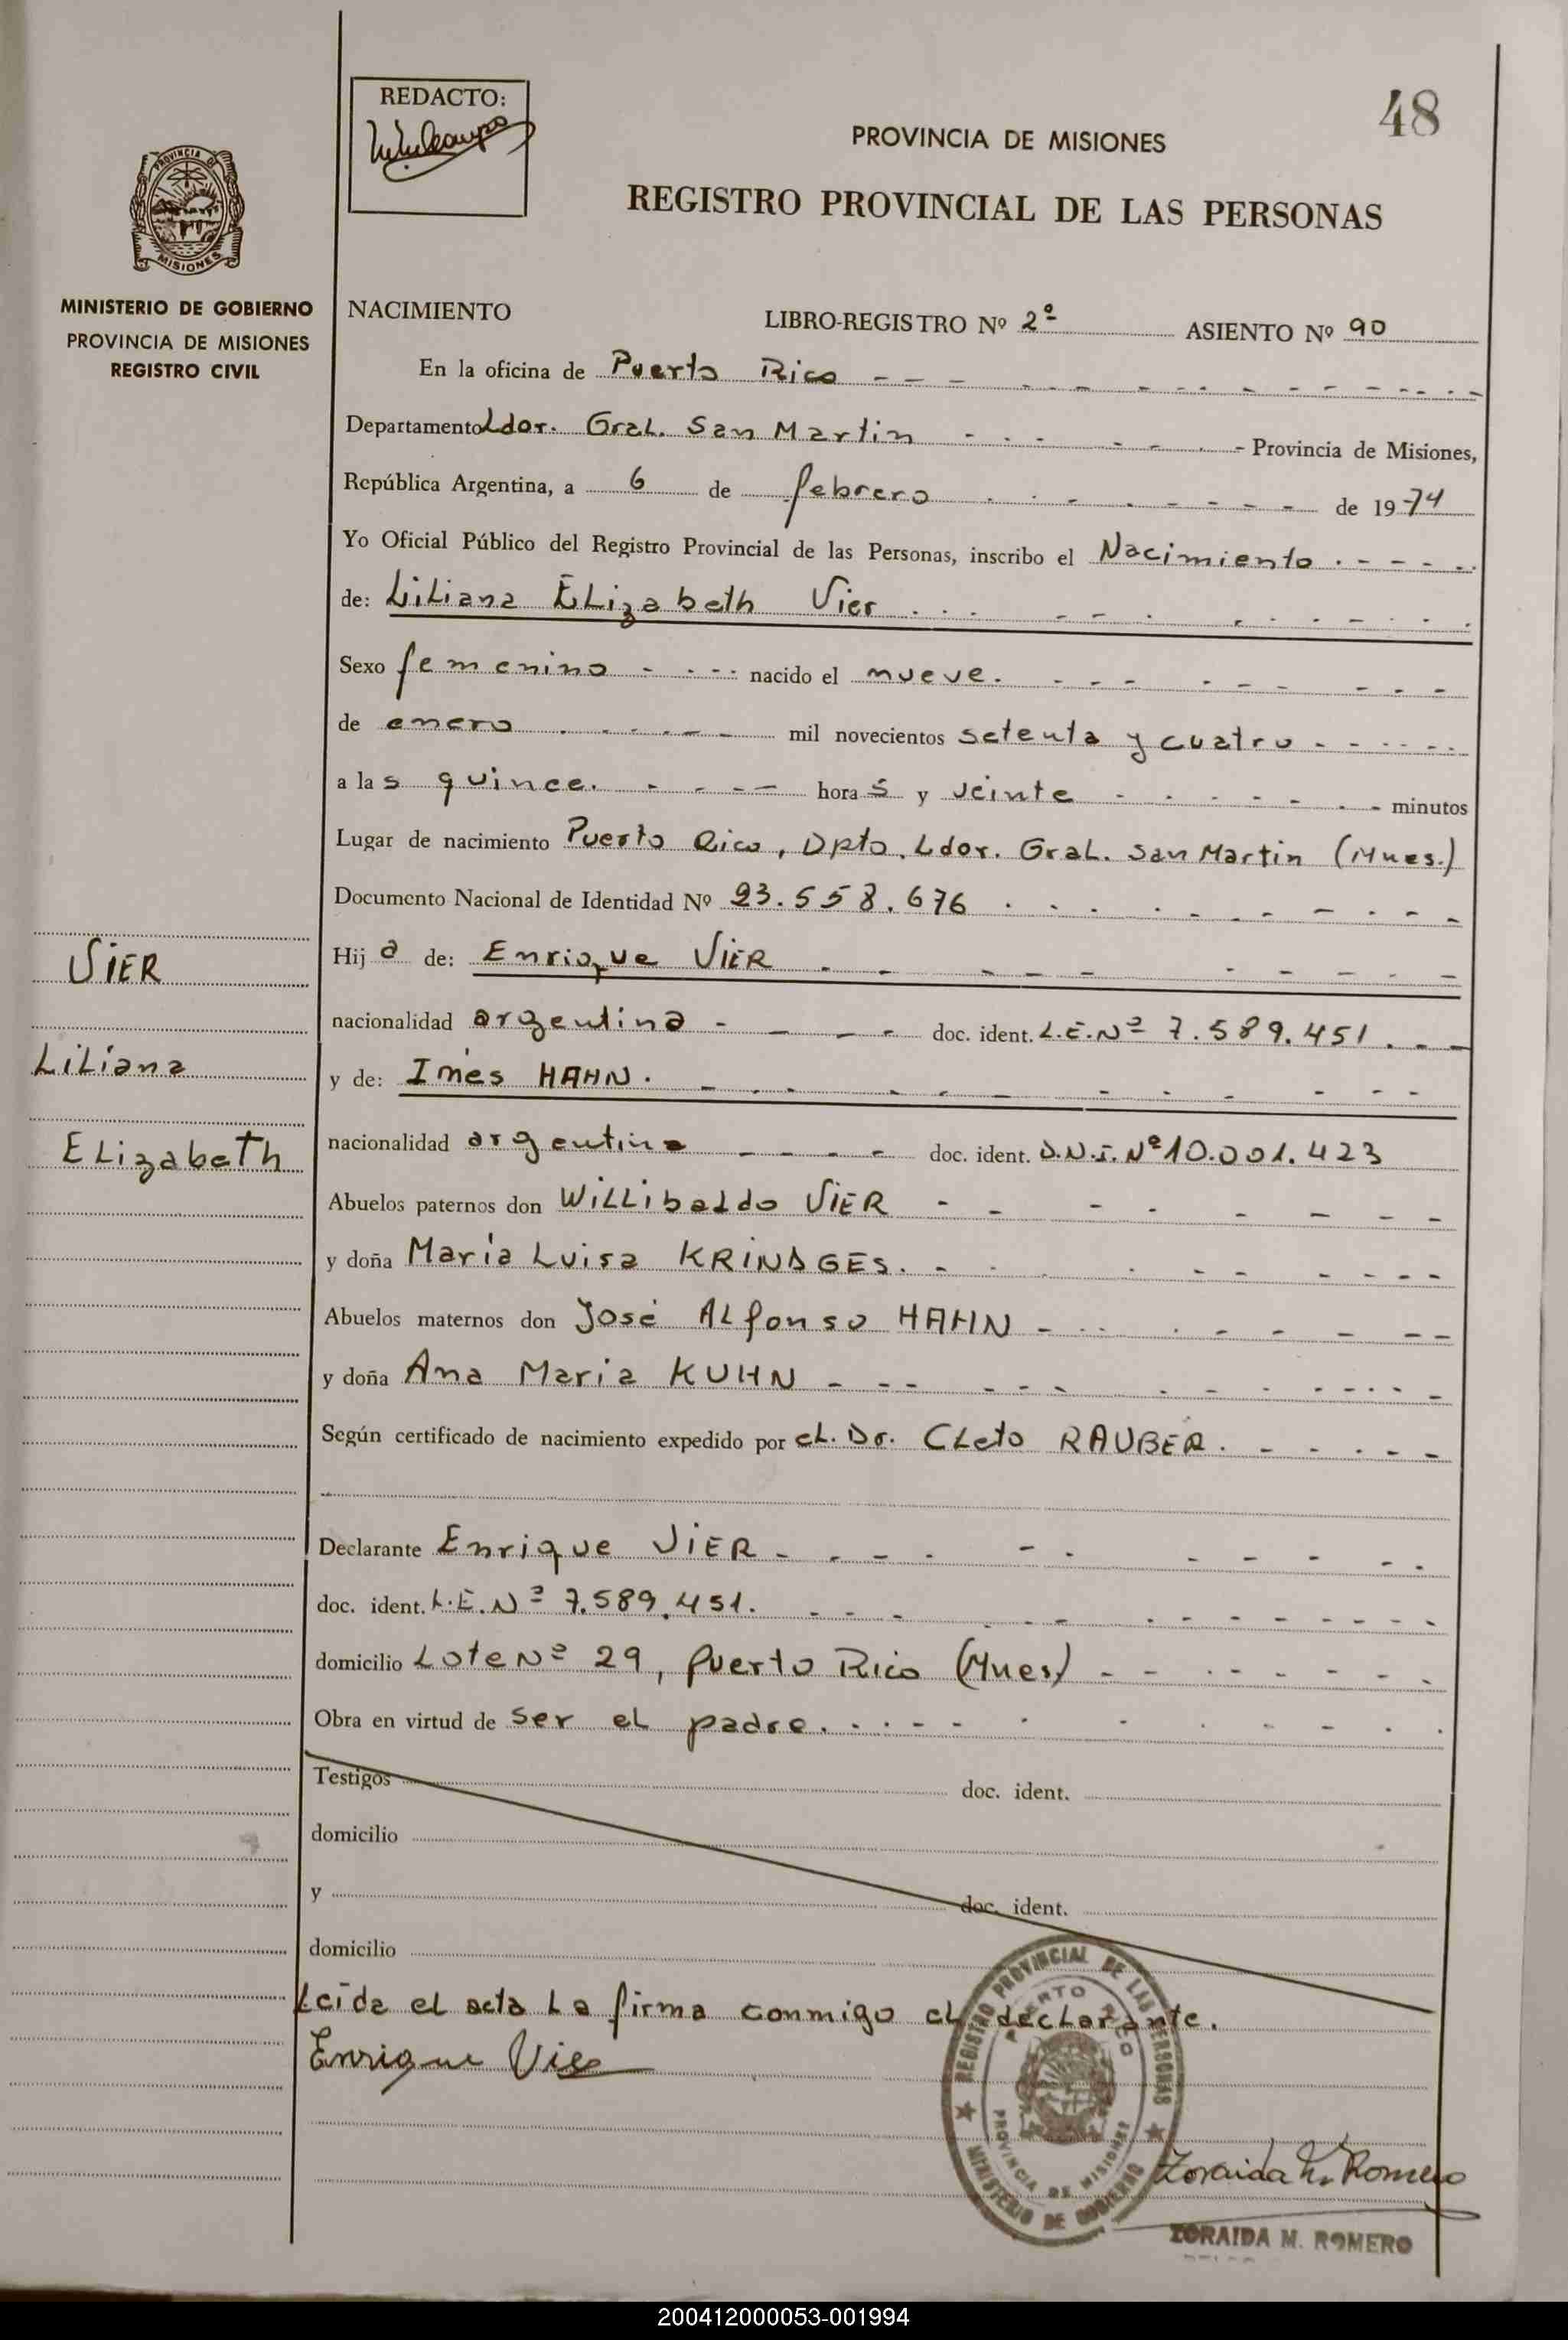 REDACTO:
48
PROVINCIA DE MISIONES
REGISTRO PROVINCIAL DE LAS PERSONAS
PROVINCIA DE
MISIONES
MINISTERIO DE GOBIERNO
PROVINCIA DE MISIONES
REGISTRO CIVIL
NACIMIENTO LIBRO-REGISTRO Nº 2º ASIENTO Nº 90
En la oficina de Puerto Rico
Departamento Ldor. Gral. San Martin Provincia de Misiones,
República Argentina, a 6 de febrero de 1974
Yo Oficial Público del Registro Provincial de las Personas, inscribo el Nacimiento
de: Liliana Elizabeth Vier
Sexo femenino nacido el nueve.
de enero mil novecientos setenta y cuatro
a las quince. horas y veinte minutos
Lugar de nacimiento Puerto Rico, Dpto. Ldor. Gral. San Martin (Mnes.)
Documento Nacional de Identidad Nº 23.558.676
VIER
Hija de: Enrique VIER
nacionalidad argentina doc. ident. L.E.Nº 7.589.451.
Liliana
y de: Inés HAHN.
Elizabeth
nacionalidad argentina doc. ident. D.N.I. Nº 10.001.423
Abuelos paternos don Willibaldo VIER
y doña María Luisa KRINDGES.
Abuelos maternos don José Alfonso HAHN
y doña Ana Maria KUHN
Según certificado de nacimiento expedido por el Dr. Cleto RAUBER.
Declarante Enrique VIER
doc. ident. L.E.Nº 7.589.451.
domicilio Lote Nº 29, Puerto Rico (Mnes)
Obra en virtud de ser el padre.
Testigos doc. ident.
domicilio
y doc. ident.
domicilio
Leída el acta la firma conmigo el declarante.
Enrique Vier
REGISTRO PROVINCIAL DE LAS PERSONAS
PUERTO RICO
PROVINCIA DE MISIONES
MINISTERIO DE GOBIERNO
Zoraida M. Romero
ZORAIDA M. ROMERO
200412000053-001994